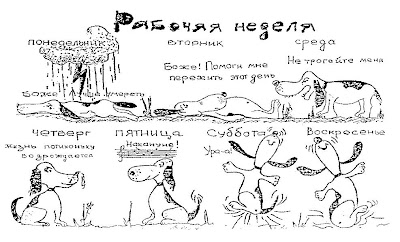 Рабочая неделя
понедельник
вторник
среда
Боже! Помоги мне
пережить этот день
Не трогайте меня
Боже! Лучше умереть
Четверг
пятница
Суббота
Воскресенье
Жизнь потихоньку
возрождается
Накануне!
Ура